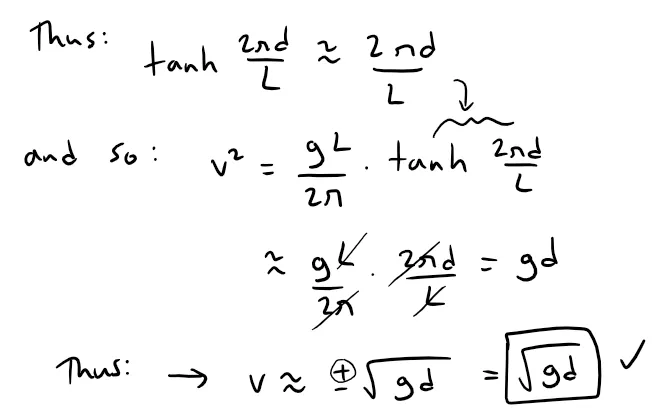 Thus: tanh 2πd/L ≈ 2πd/L
and so: v² = gL/2π · tanh 2πd/L
≈ gL/2π · 2πd/L = gd
Thus: → v ≈ ±√gd = √gd ✓